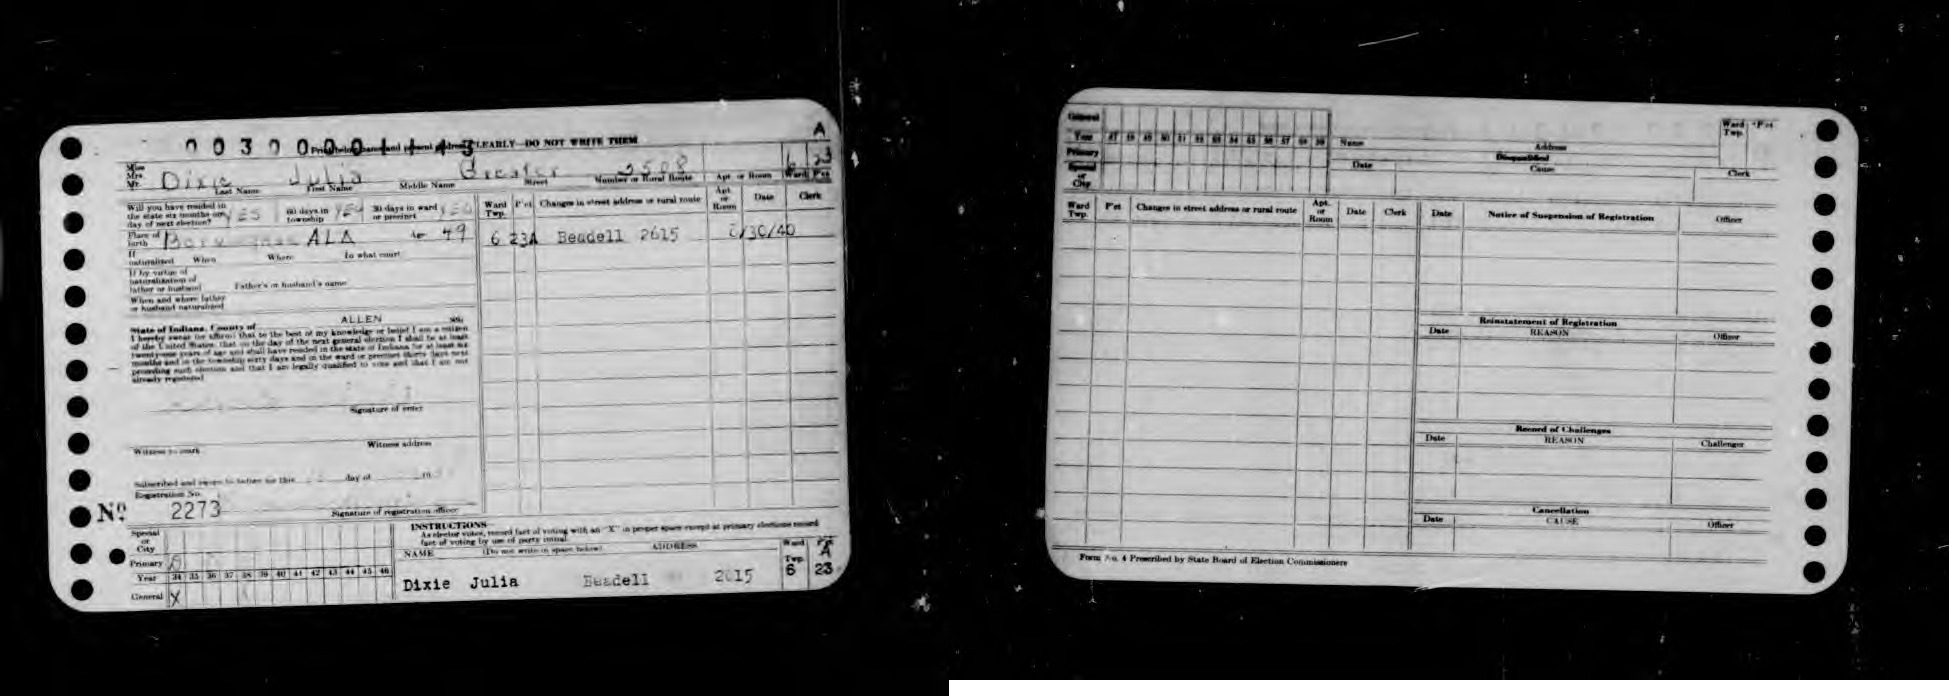 A
0030001143
CLEARLY—DO NOT WRITE THEM
Miss
Mrs.
Mr.
Dixie Julia 3508 6 23
Last Name First Name Middle Name Street Number or Rural Route Apt. or Room Ward Pct
Will you have resided in the state six months on day of next election? YES 60 days in township YES 30 days in ward or precinct YES
Place of birth ALA Age 49
If naturalized When Where In what court
If by virtue of naturalization of father or husband Father's or husband's name
When and where father or husband naturalized
State of Indiana, County of ALLEN ss:
I hereby swear (or affirm) that to the best of my knowledge or belief I am a citizen
of the United States, that on the day of the next general election I shall be at least
twenty-one years of age and shall have resided in the state of Indiana for at least six
months and in the township sixty days and in the ward or precinct thirty days next
preceding such election and that I am legally qualified to vote and that I am not
already registered.
Signature of voter
Witness to mark Witness address
Subscribed and sworn to before me this day of 19
Registration No.
Nº 2273 Signature of registration officer
Ward Twp. P'ct Changes in street address or rural route Apt. or Room Date Clerk
6 23A Beadell 2615 /30/40
Special or City
Primary
Year 34 35 36 37 38 39 40 41 42 43 44 45 46
General X
INSTRUCTIONS
As elector votes, record fact of voting with an "X" in proper space except at primary elections record
fact of voting by use of party initial.
NAME (Do not write in space below) ADDRESS Ward Twp. A
Dixie Julia Beadell 2615 6 23
General
Year 47 48 49 50 51 52 53 54 55 56 57 58 59
Primary
Special or City
Name Address Ward Twp. P'ct
Disqualified
Date Cause Clerk
Ward Twp. P'ct Changes in street address or rural route Apt. or Room Date Clerk
Date Notice of Suspension of Registration Officer
Reinstatement of Registration
Date REASON Officer
Record of Challenges
Date REASON Challenger
Cancellation
Date CAUSE Officer
Form No. 4 Prescribed by State Board of Election Commissioners